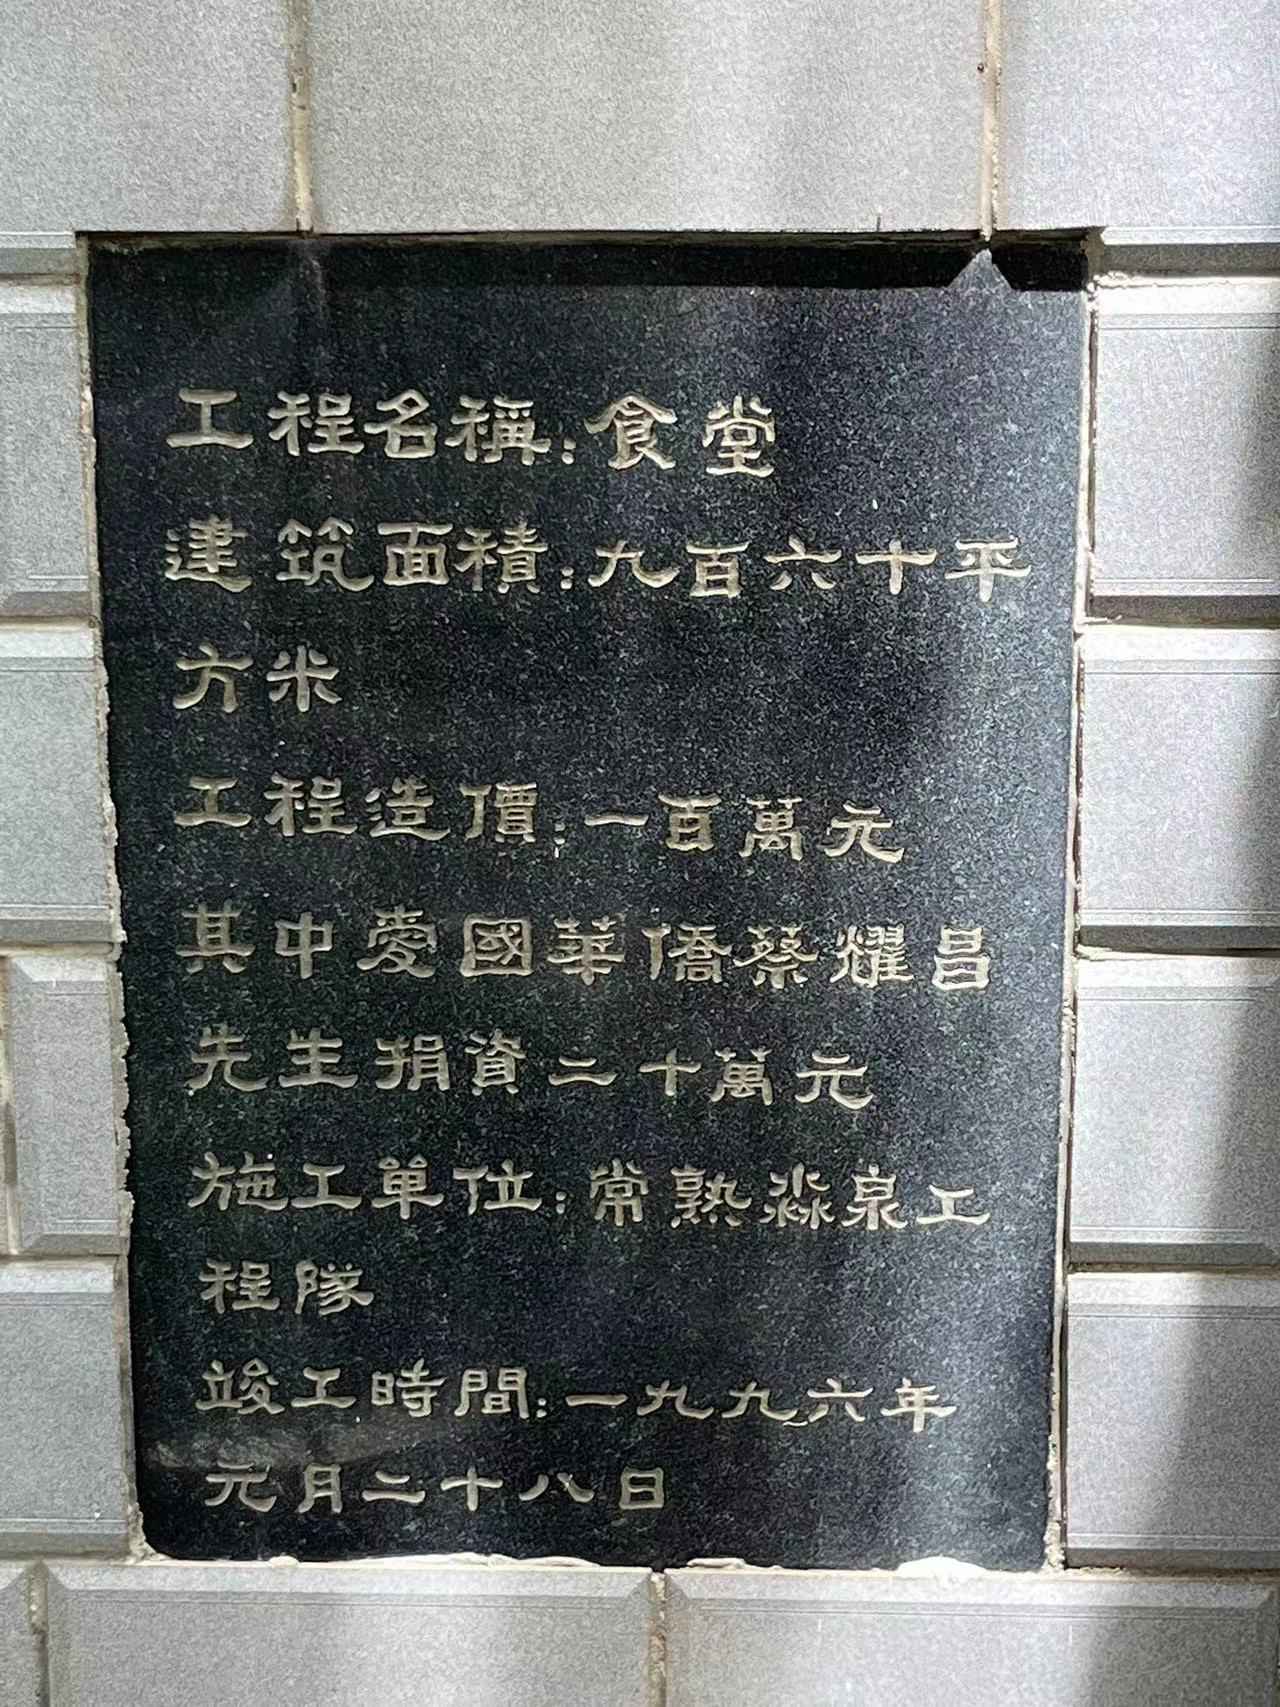 工程名稱:食堂
建筑面積:九百六十平
方米
工程造價:一百萬元
其中愛國華僑蔡耀昌
先生捐資二十萬元
施工單位:常熟淼泉工
程隊
竣工時間:一九九六年
元月二十八日